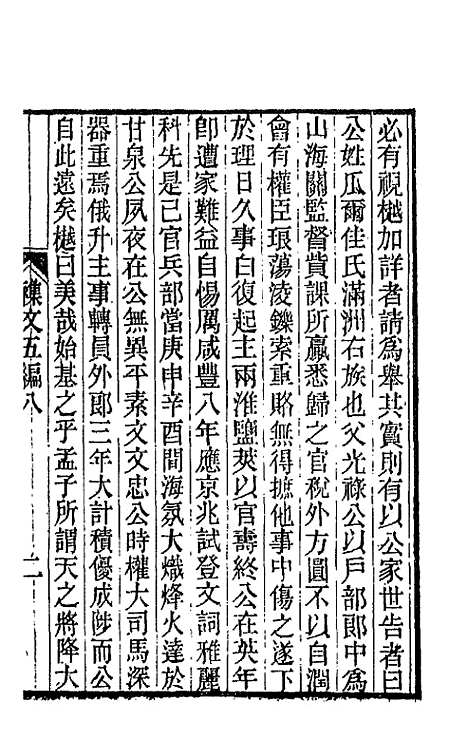 必有視樾加詳者請爲舉其實則有以公家世告者曰
公姓瓜爾佳氏滿洲右族也父光祿公以戶部郞中爲
山海關監督貲課所贏悉歸之官稅外方圓不以自潤
會有權臣琅蕩淩鑠索重賂無得摭他事中傷之遂下
於理日久事白復起主兩淮鹽筴以官壽終公在英年
卽遭家難益自惕厲咸豐八年應京兆試登文詞雅麗
科先是已官兵部當庚申辛酉間海氛大熾烽火達於
甘泉公夙夜在公無異平素文文忠公時權大司馬深
器重焉俄升主事轉員外郞三年大計積優成陟而公
自此遠矣樾曰美哉始基之乎孟子所謂天之將降大
襍文五編八
二